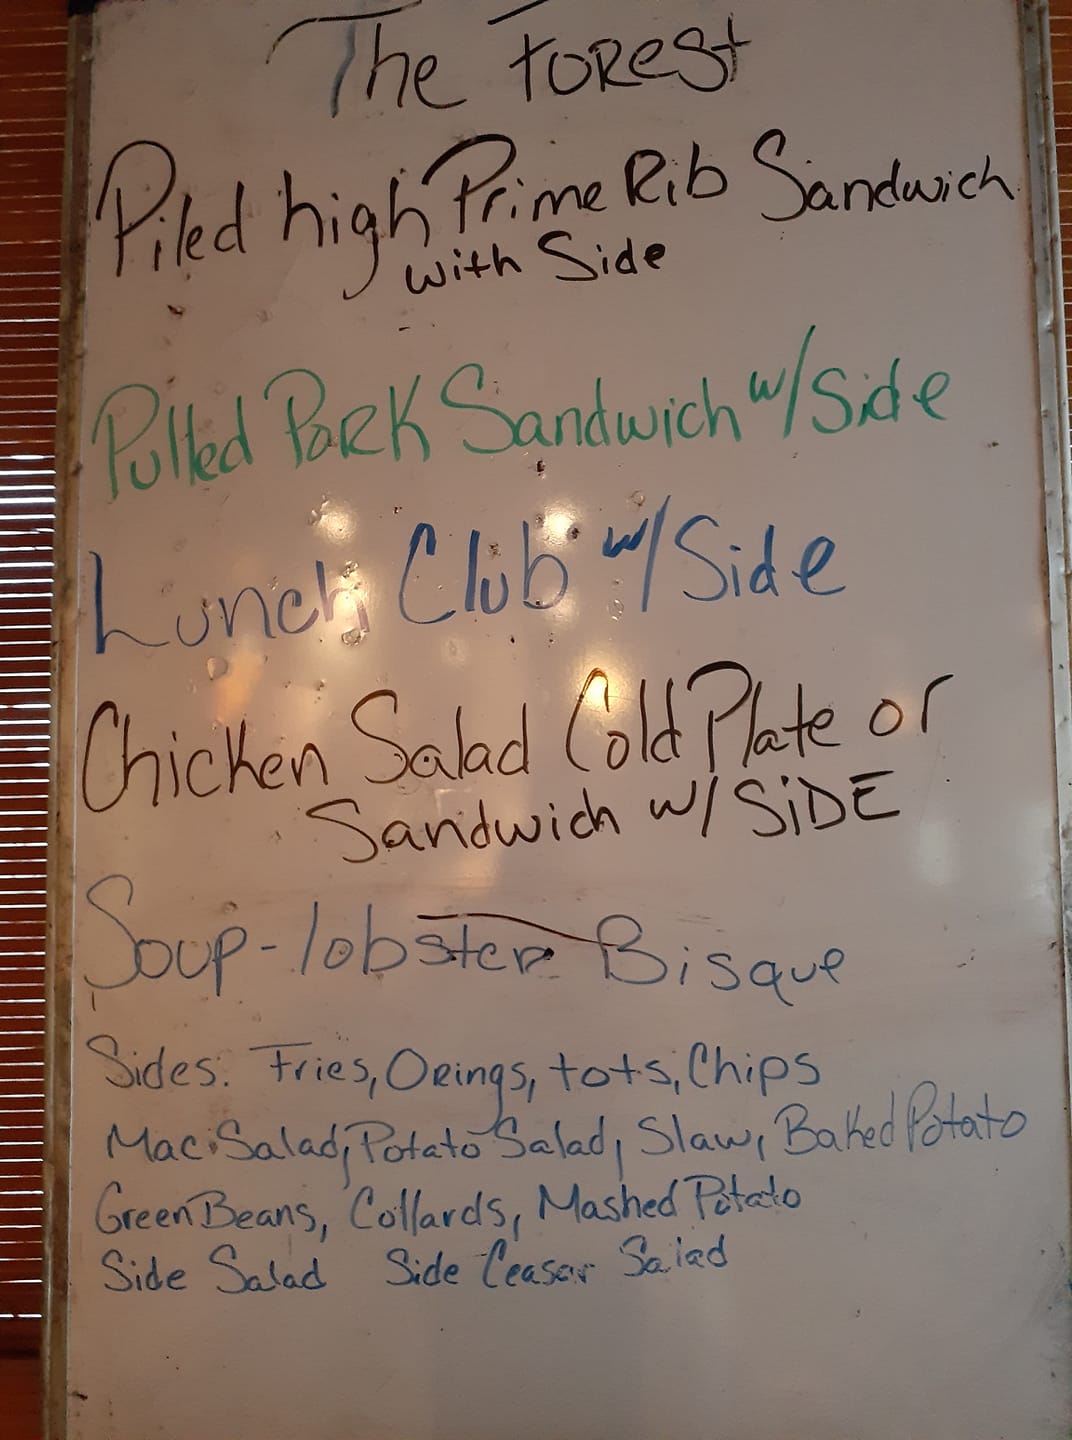 The Forest
Piled high Prime Rib Sandwich
with Side
Pulled Pork Sandwich w/Side
Lunch Club w/Side
Chicken Salad Cold Plate or
Sandwich w/ SiDE
Soup - lobster Bisque
Sides: Fries, Orings, tots, Chips
Mac Salad, Potato Salad, Slaw, Baked Potato
Green Beans, Collards, Mashed Potato
Side Salad Side Ceaser Salad